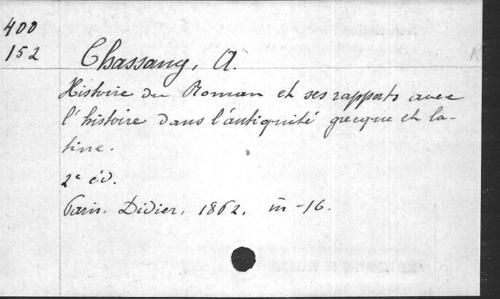 400
152
Chassang, A.
Histoire du Roman et ses rapports avec
l'histoire dans l'antiquité grecque et la-
tine.
2e éd.
Paris. Didier, 1862. in-16.